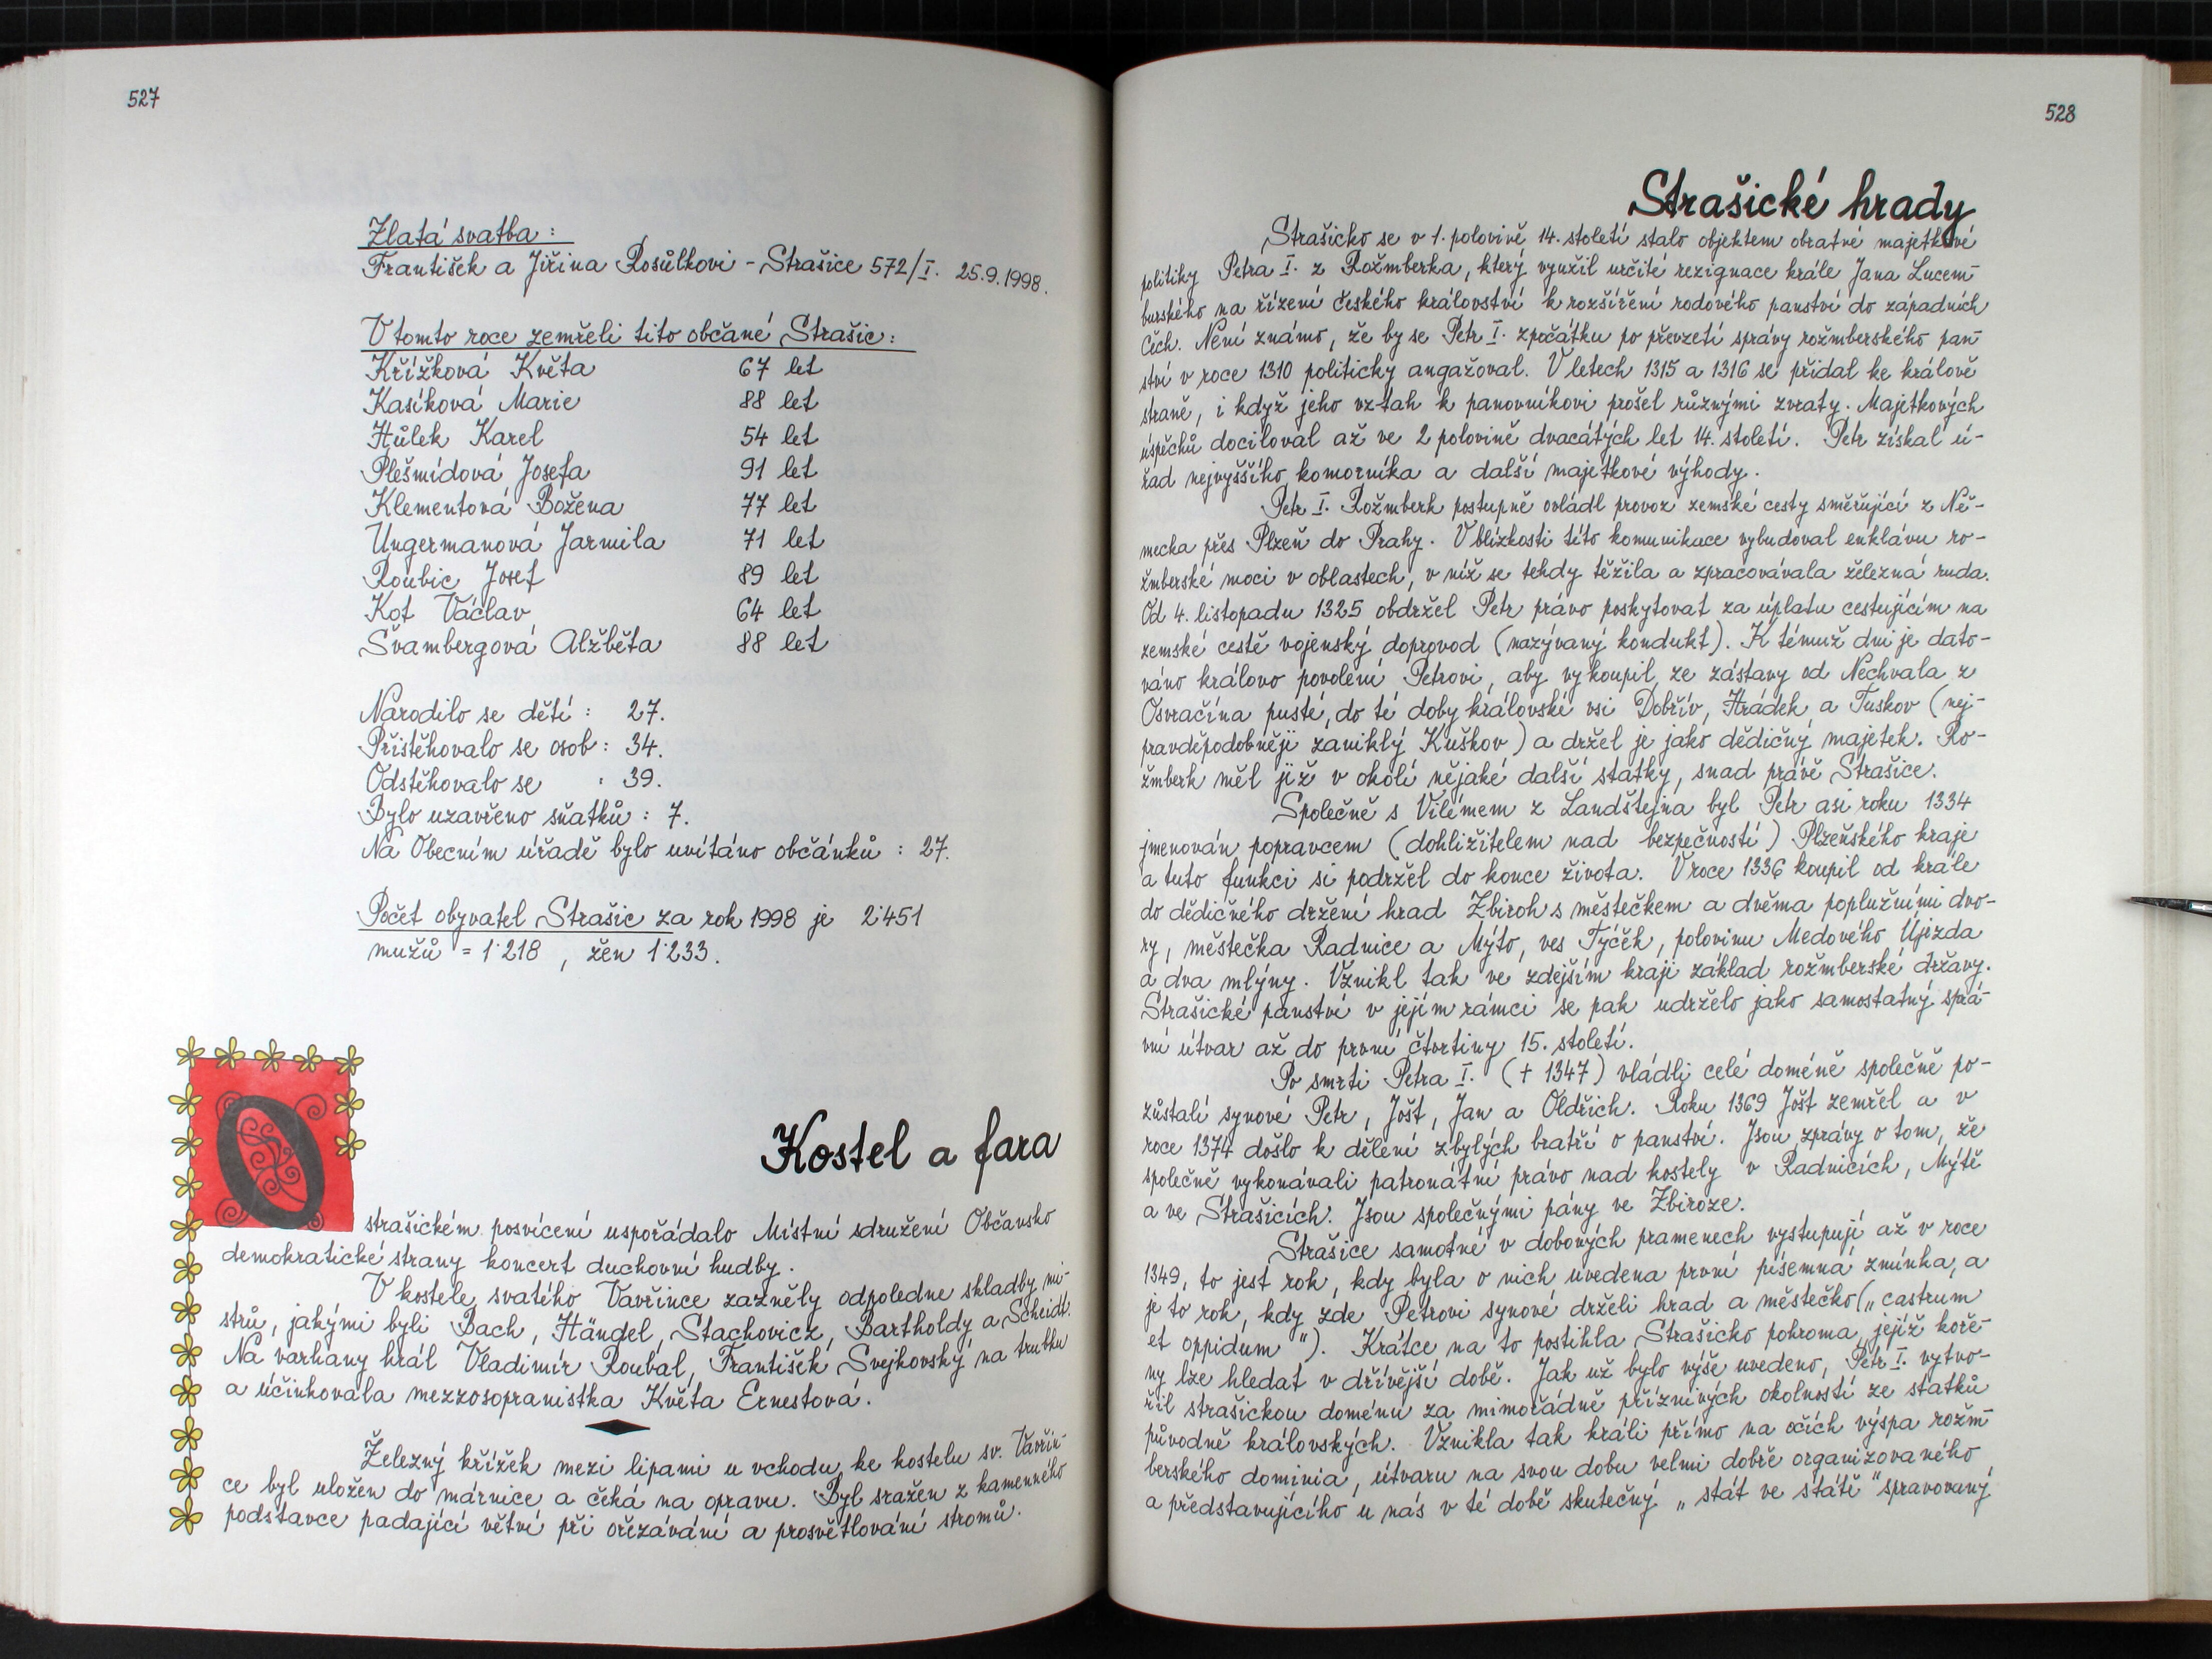 527
Zlatá svatba :
František a Jiřina Rosůlkovi - Strašice 572/I. 25.9.1998.
V tomto roce zemřeli tito občané Strašic :
Křížková Květa 67 let
Kasíková Marie 88 let
Hůlek Karel 54 let
Plešmídová Josefa 91 let
Klementová Božena 77 let
Ungermanová Jarmila 71 let
Roubic Josef 89 let
Kot Václav 64 let
Švambergová Alžběta 88 let
Narodilo se dětí : 27.
Přistěhovalo se osob : 34.
Odstěhovalo se : 39.
Bylo uzavřeno sňatků : 7.
Na Obecním úřadě bylo uvítáno občánků : 27.
Počet obyvatel Strašic za rok 1998 je 2˙451
mužů = 1˙218 , žen 1˙233.
Kostel a fara
O strašickém posvícení uspořádalo Místní sdružení Občansko
demokratické strany koncert duchovní hudby.
V kostele svatého Vavřince zazněly odpoledne skladby mi-
strů, jakými byli Bach, Händel, Stachovicz, Bartholdy a Scheidt.
Na varhany hrál Vladimír Roubal, František Svejkovský na trubku
a účinkovala mezzosopranistka Květa Ernestová.
Železný křížek mezi lipami u vchodu ke kostelu sv. Vavřin-
ce byl uložen do márnice a čeká na opravu. Byl sražen z kamenného
podstavce padající větví při ořezávání a prosvětlování stromů.
528
Strašické hrady
Strašicko se v 1. polovivě 14. století stalo objektem obratné majetkové
politiky Petra I. z Rožmberka, který využil určité rezignace krále Jana Lucem-
burského na řízení českého království k rozšíření rodového panství do západních
Čech. Není známo, že by se Petr I. zpočátku po převzetí správy rožmberského pan-
ství v roce 1310 politicky angažoval. V letech 1315 a 1316 se přidal ke králově
straně, i když jeho vztah k panovníkovi prošel různými zvraty. Majetkových
úspěchů dociloval až ve 2 polovině dvacátých let 14. století. Petr získal ú-
řad nejvyššího komorníka a další majetkové výhody.
Petr I. Rožmberk postupně ovládl provoz zemské cesty směřující z Ně-
mecka přes Plzeň do Prahy. V blízkosti této komunikace vybudoval enklávu ro-
žmberské moci v oblastech, v níž se tehdy těžila a zpracovávala železná ruda.
Od 4. listopadu 1325 obdržel Petr právo poskytovat za úplatu cestujícím na
zemské cestě vojenský doprovod (nazývaný kondukt). K témuž dni je dato-
váno královo povolení Petrovi, aby vykoupil ze zástavy od Nechvala z
Osvračína pusté, do té doby královské vsi Dobřív, Hrádek a Tuskov (nej-
pravděpodobněji zaniklý Kuškov) a držel je jako dědičný majetek. Ro-
žmberk měl již v okolí nějaké další statky, snad právě Strašice.
Společně s Vilémem z Landštejna byl Petr asi roku 1334
jmenován popravcem (dohližitelem nad bezpečností) Plzeňského kraje
a tuto funkci si podržel do konce života. V roce 1336 koupil od krále
do dědičného držení hrad Zbiroh s městečkem a dvěma poplužními dvo-
ry, městečka Radnice a Mýto, ves Týček, polovinu Medového Újezda
a dva mlýny. Vznikl tak ve zdejším kraji základ rožmberské državy.
Strašické panství v jejím rámci se pak udrželo jako samostatný sprá-
vní útvar až do první čtvrtiny 15. století.
Po smrti Petra I. († 1347) vládli celé doméně společně po-
zůstalí synové Petr, Jošt, Jan a Oldřich. Roku 1369 Jošt zemřel a v
roce 1374 došlo k dělení zbylých bratří o panství. Jsou zprávy o tom, že
společně vykonávali patronátní právo nad kostely v Radnicích, Mýtě
a ve Strašicích. Jsou společnými pány ve Zbiroze.
Strašice samotné v dobových pramenech vystupují až v roce
1349, to jest rok, kdy byla o nich uvedena první písemná zmínka, a
je to rok, kdy zde Petrovi synové drželi hrad a městečko („castrum
et oppidum"). Krátce na to postihla Strašicko pohroma, jejíž koře-
ny lze hledat v dřívější době. Jak už bylo výše uvedeno, Petr I. vytvo-
řil strašickou doménu za mimořádně příznivých okolností ze statků
původně královských. Vznikla tak králi přímo na očích výspa rožm-
berského dominia, útvaru na svou dobu velmi dobře organizovaného
a představujícího u nás v té době skutečný „stát ve státě" spravovaný